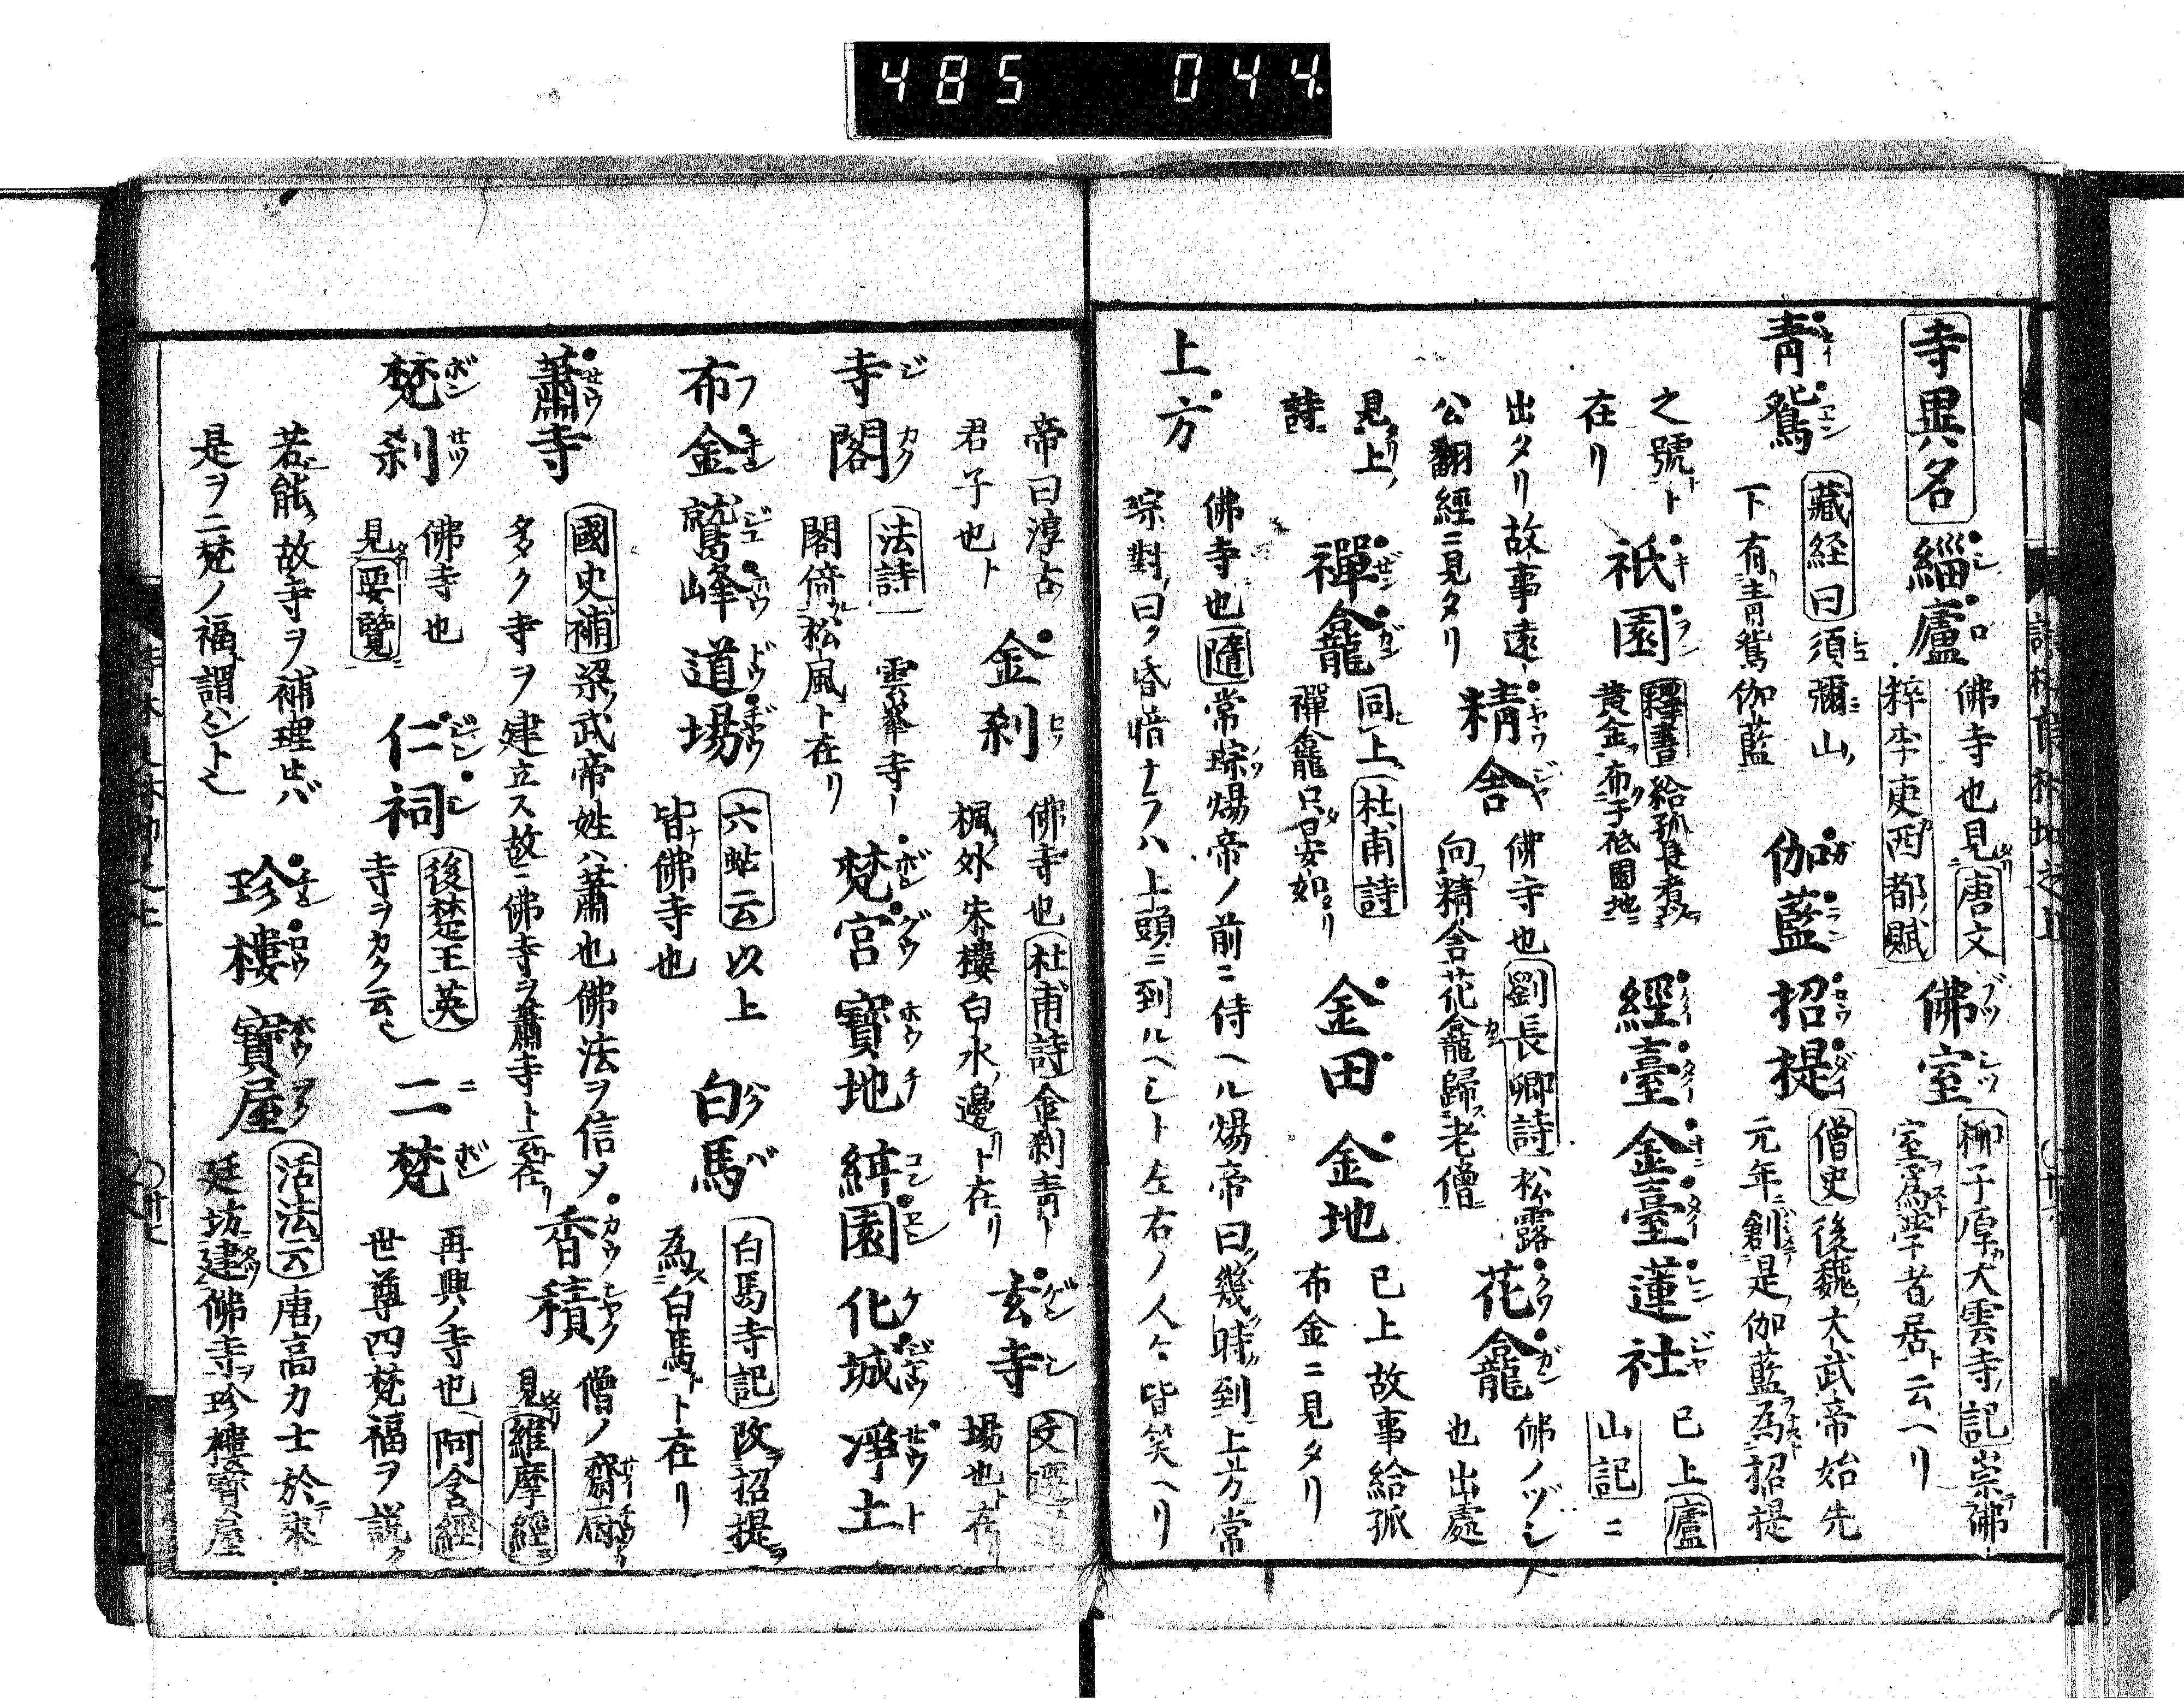 485 044
寺異名 緇廬 佛寺也見唐文
粹李庾西都賦 佛室 柳子厚大雲寺記崇佛
室為學者居ト云ヘリ
青鴛 藏経曰須彌山
下有青鴛伽藍 伽藍 招提 僧史後魏太武帝始先
元年創是伽藍為招提
之號ト
在リ 祇園 釋書給孤長者
黄金布于祇園地 經臺 金臺 蓮社 已上廬
山記ニ
出タリ故事遠
公翻經ニ見タリ 精舎 佛寺也劉長卿詩松露
向精舎花龕歸老僧 花龕 佛ノヅシ
也出處
見上
詩 禪龕 同上杜甫詩
禪龕只晏如 金田 金地 已上故事給孤
布金ニ見タリ
上方 佛寺也隨常琮煬帝ノ前ニ侍ヘル煬帝曰幾時到上方常
琮對曰ク昏惛ナラハ上頭ニ到ルヘシト左右ノ人々皆笑ヘリ
帝曰淳古
君子也ト 金刹 佛寺也杜甫詩金刹青
楓外朱樓白水邊ト在リ 玄寺 文選
場也ト在リ
寺閣 法詩 雲峯寺
閣倚松風ト在リ 梵宮 寳地 紺園 化城 淨土
布金 鷲峰 道場 六帖云以上
皆佛寺也 白馬 白馬寺記改招提
為白馬ト在リ
蕭寺 國史補梁武帝姓ハ蕭也佛法ヲ信メ
多ク寺ヲ建立ス故ニ佛寺ヲ蕭寺ト云在リ 香積 僧ノ齋厨
見維摩經
梵刹 佛寺也
見要覽 仁祠 後楚王英
寺ヲカク云 二梵 再興ノ寺也阿含經
世尊四梵福ヲ説ク
若能故寺ヲ補理セバ
是ヲ二梵ノ福謂ントヘ 珍樓 寳屋 活法云唐高力士於來
廷坊建佛寺珍樓寳屋